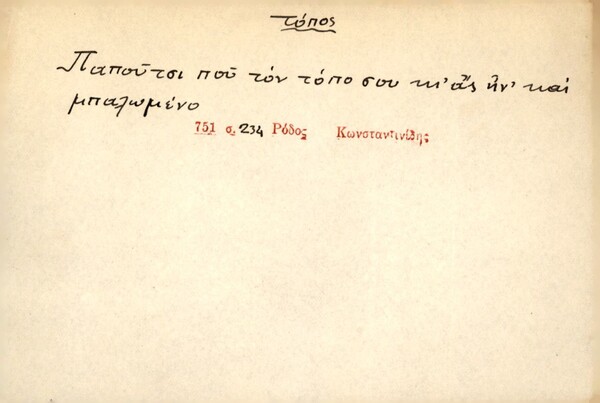 τόπος
Παποῦτσι ποῦ τόν τόπο σου κι' ἄς ἦν' καί
μπαλωμένο
751 σ. 234 Ρόδος Κωνσταντινίδης